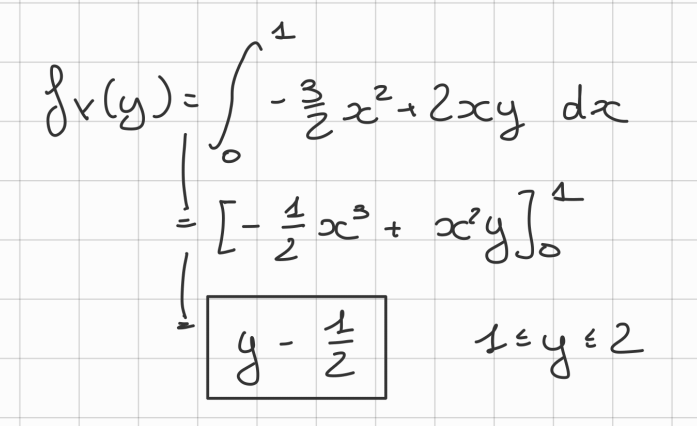 fY(y) = ∫₀¹ -3/2 x² + 2xy dx
= [-1/2 x³ + x²y]₀¹
= y - 1/2 1 ≤ y ≤ 2